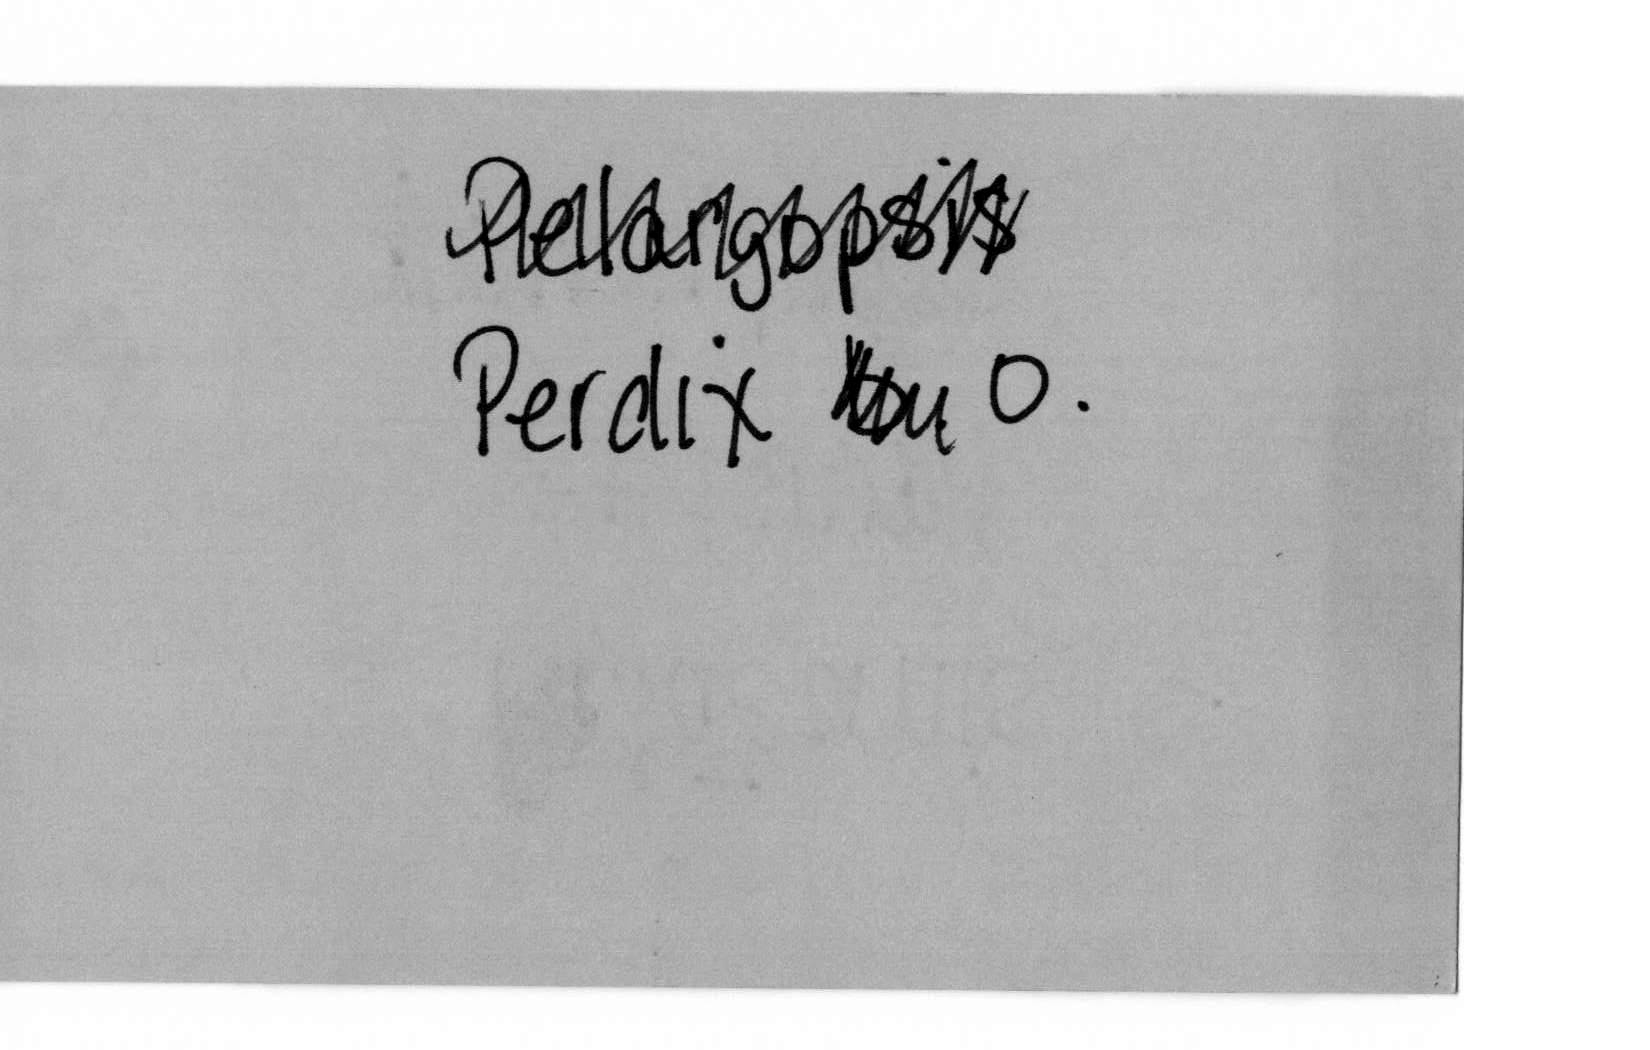 Pelargopsis
Perdix O.